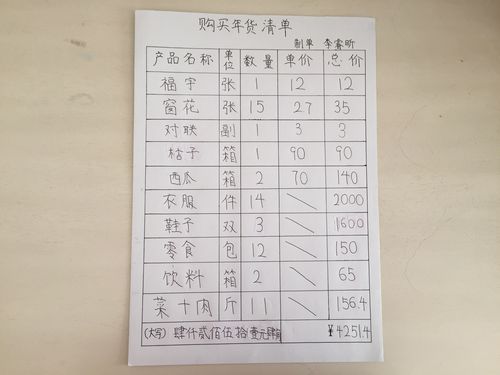 购买年货清单
制单 李睿昕
产品名称 单位 数量 单价 总价
福字 张 1 12 12
窗花 张 15 2.7 35
对联 副 1 3 3
桔子 箱 1 90 90
西瓜 箱 2 70 140
衣服 件 14 \ 2000
鞋子 双 3 \ 1600
零食 包 12 \ 150
饮料 箱 2 \ 65
菜十肉 斤 11 \ 156.4
(大写) 肆仟贰佰伍拾壹元肆角 ¥4251.4